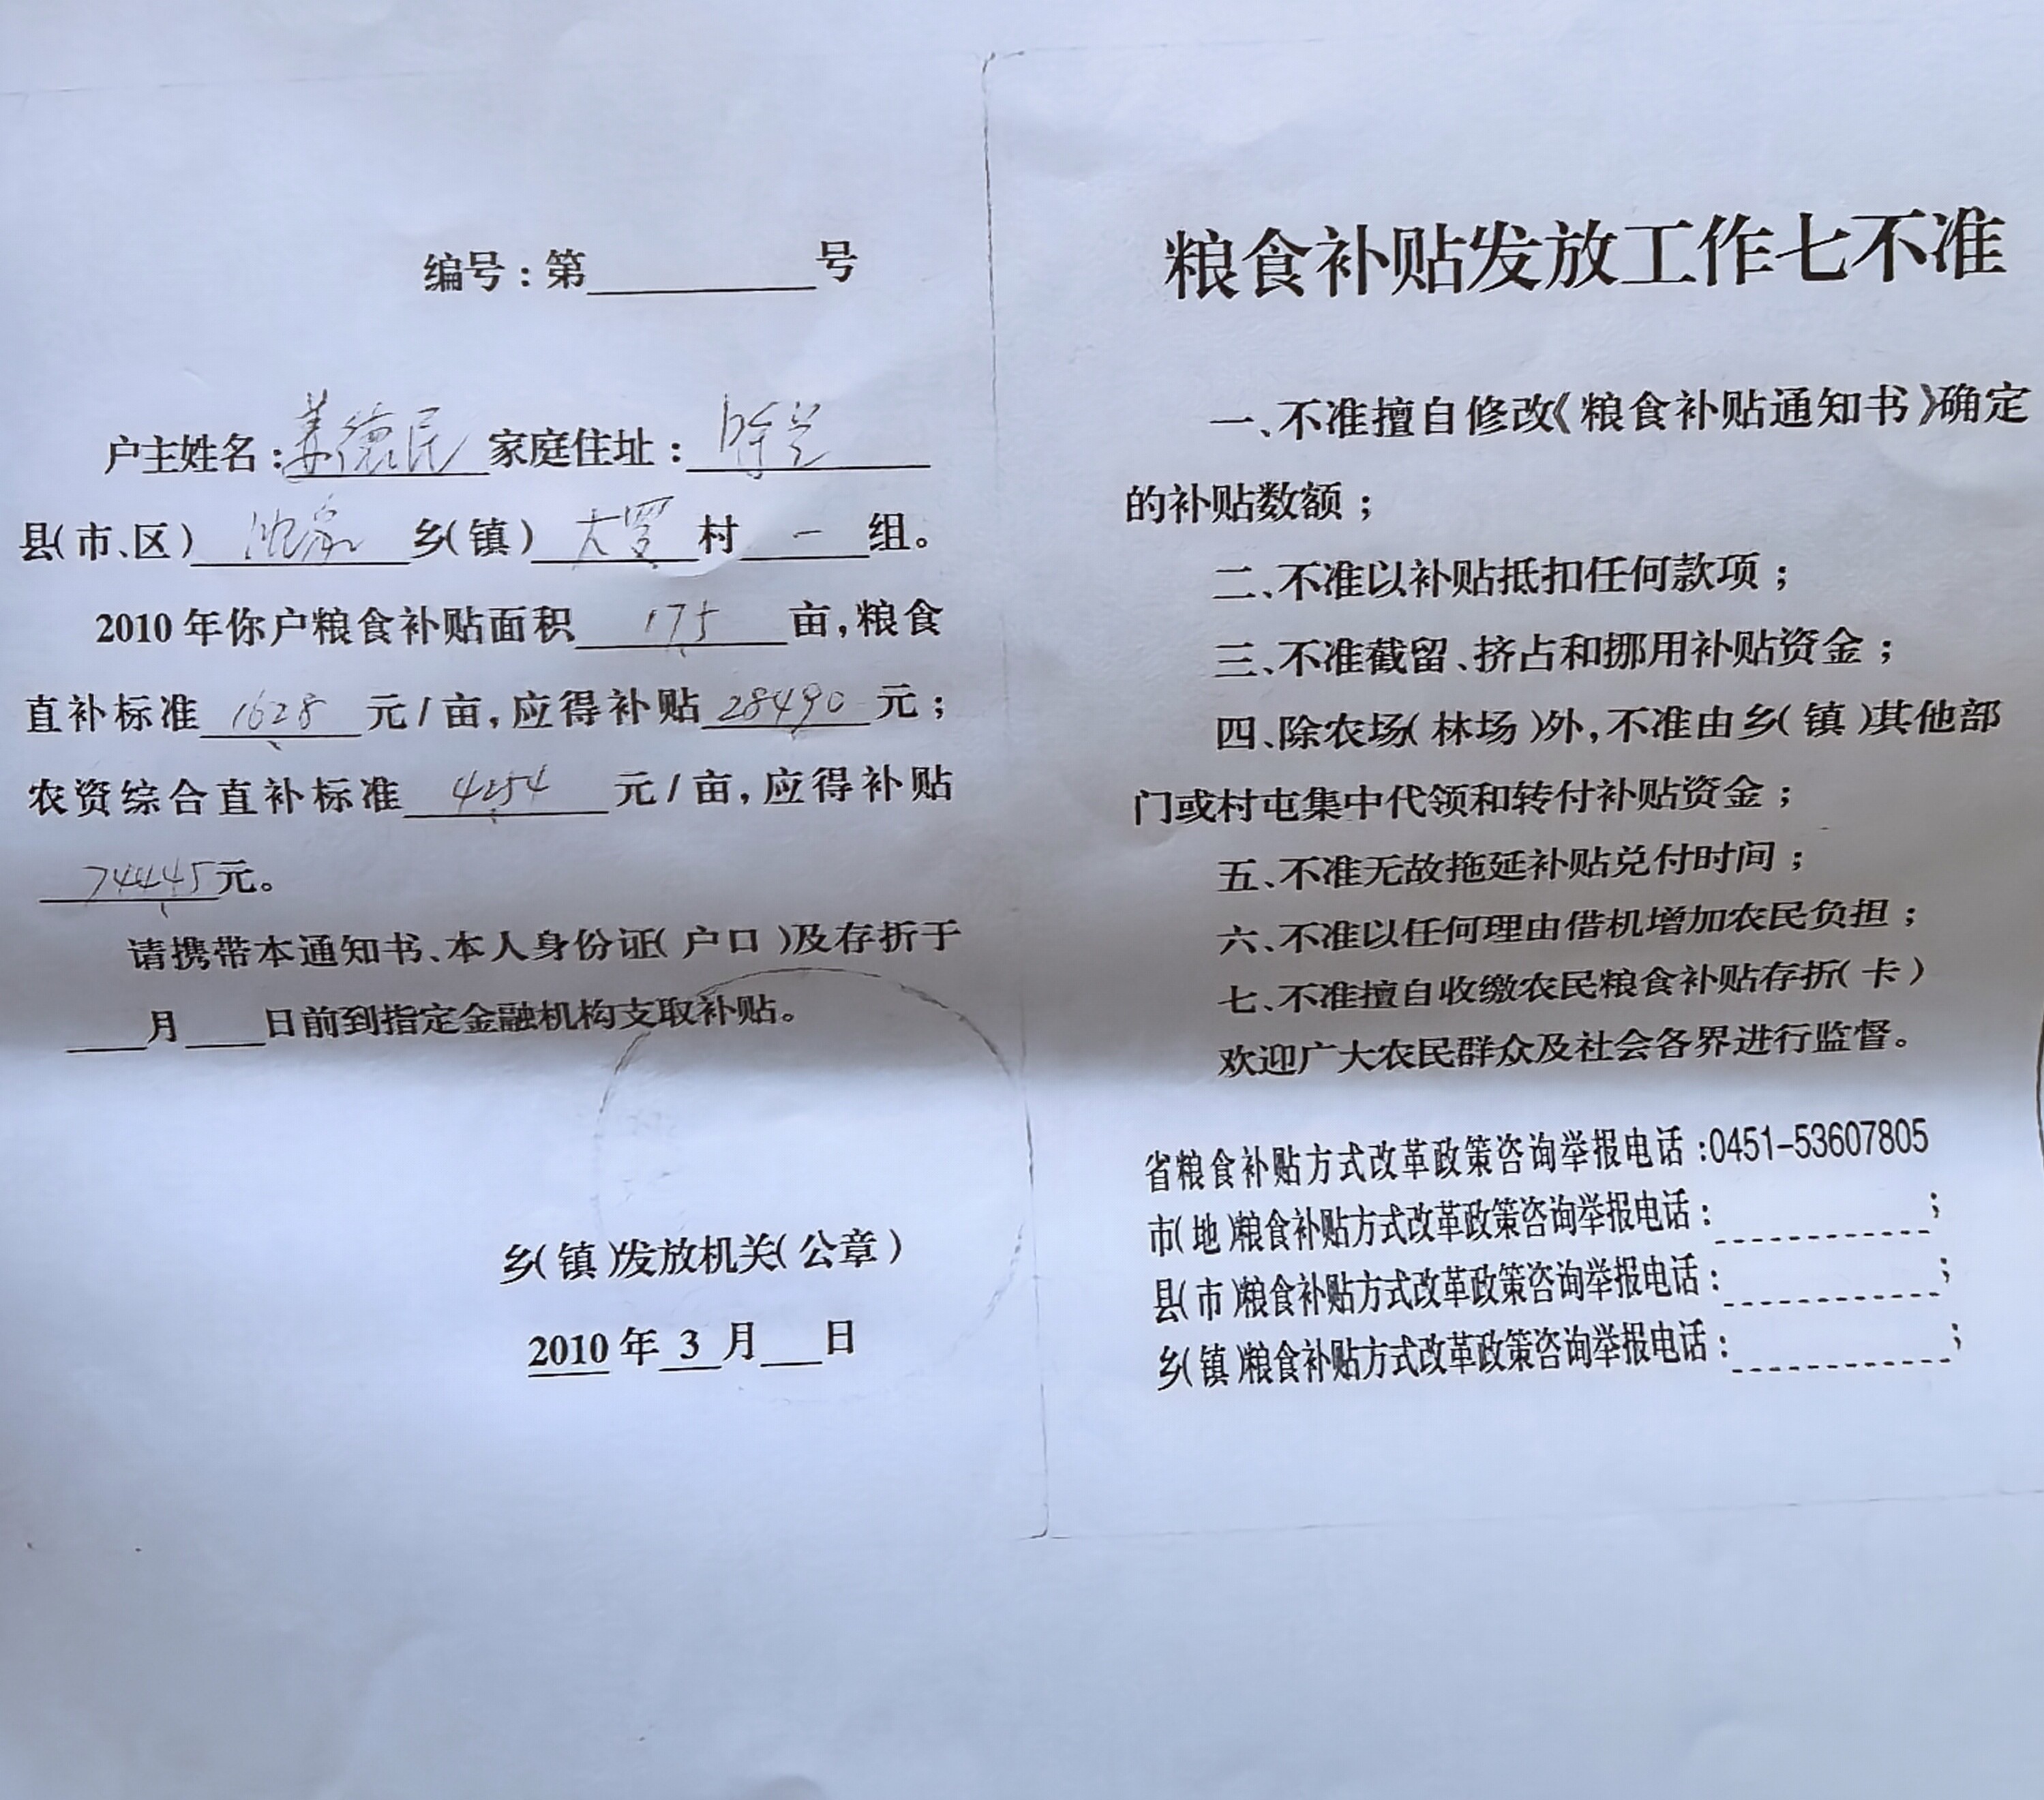 编号：第______号
户主姓名：姜德民 家庭住址：
县(市、区) 沈家 乡(镇) 大罗 村 一 组。
2010年你户粮食补贴面积 175 亩，粮食
直补标准 1628 元/亩，应得补贴 28490 元；
农资综合直补标准 4254 元/亩，应得补贴
74445元。
请携带本通知书、本人身份证(户口)及存折于
___月___日前到指定金融机构支取补贴。
乡(镇)发放机关(公章)
2010年3月__日
粮食补贴发放工作七不准
一、不准擅自修改《粮食补贴通知书》确定
的补贴数额；
二、不准以补贴抵扣任何款项；
三、不准截留、挤占和挪用补贴资金；
四、除农场(林场)外，不准由乡(镇)其他部
门或村屯集中代领和转付补贴资金；
五、不准无故拖延补贴兑付时间；
六、不准以任何理由借机增加农民负担；
七、不准擅自收缴农民粮食补贴存折(卡)
欢迎广大农民群众及社会各界进行监督。
省粮食补贴方式改革政策咨询举报电话：0451-53607805
市(地)粮食补贴方式改革政策咨询举报电话：------------；
县(市)粮食补贴方式改革政策咨询举报电话：------------；
乡(镇)粮食补贴方式改革政策咨询举报电话：------------；